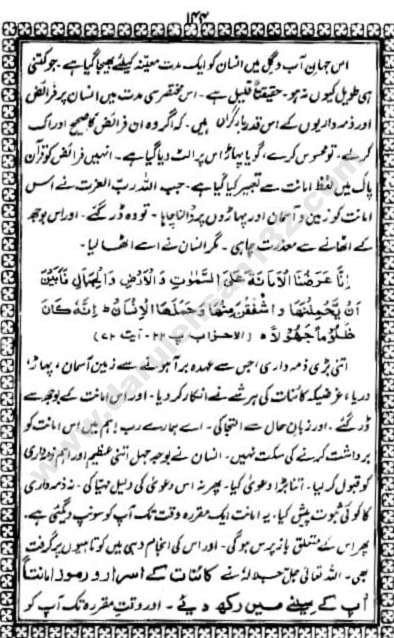 ۱۴۴
اس جہانِ آب و گل میں انسان کو ایک مدت معینہ کیلئے بھیجا گیا ہے۔ جو کتنی
ہی طویل کیوں نہ ہو۔ حقیقتاً قلیل ہے۔ اس مختصر سی مدت میں انسان پر فرائض
اور ذمہ داریوں کے اس قدر بارِ گراں ہیں۔ کہ اگر وہ ان فرائض کا صحیح ادراک
کرلے۔ تو محسوس کرے، گویا پہاڑ اس پر الٹ دیا گیا ہے۔ انہیں فرائض کو قرآن
پاک میں لفظ امانت سے تعبیر کیا گیا ہے۔ جب اللہ ربّ العزت نے اس
امانت کو زمین و آسمان اور پہاڑوں پر ڈالنا چاہا۔ تو وہ ڈر گئے۔ اور اس بوجھ
کے اٹھانے سے معذرت چاہی۔ مگر انسان نے اسے اٹھا لیا۔
اِنَّا عَرَضْنَا الْاَمَانَةَ عَلَى السَّمٰوٰتِ وَالْاَرْضِ وَالْجِبَالِ فَاَبَيْنَ
اَنْ يَّحْمِلْنَهَا وَاَشْفَقْنَ مِنْهَا وَحَمَلَهَا الْاِنْسَانُ ط اِنَّهٗ كَانَ
ظَلُوْمًا جَهُوْلًا ه (الاحزاب پ ۲۲۔ آیت ۷۲)
اتنی بڑی ذمہ داری، جس سے عہدہ برآ ہونے سے زمین آسمان، پہاڑ،
دریا، غرضیکہ کائنات کی ہر شے نے انکار کر دیا۔ اور اس امانت کے بوجھ سے
ڈر گئے۔ اور زبانِ حال سے التجا کی۔ اے ہمارے رب! ہم میں اس امانت کو
برداشت کرنے کی سکت نہیں۔ انسان نے بوجہ جہل اتنی عظیم اور اہم ذمہ داری
کو قبول کر لیا۔ اتنا بڑا دعویٰ کیا۔ پھر نہ اس دعویٰ کی دلیل مہیا کی۔ نہ ذمہ داری
کا کوئی ثبوت پیش کیا۔ یہ امانت ایک مقررہ وقت تک آپ کو سونپ دی گئی ہے۔
پھر اس کے متعلق باز پرس ہوگی۔ اور اس کی انجام دہی میں کوتاہیوں پر گرفت
بھی۔ اللہ تعالیٰ جل جلالہٗ نے کائنات کے اسرار و رموز امانتاً
آپ کے سینے میں رکھ دیئے۔ اور وقتِ مقررہ تک آپ کو